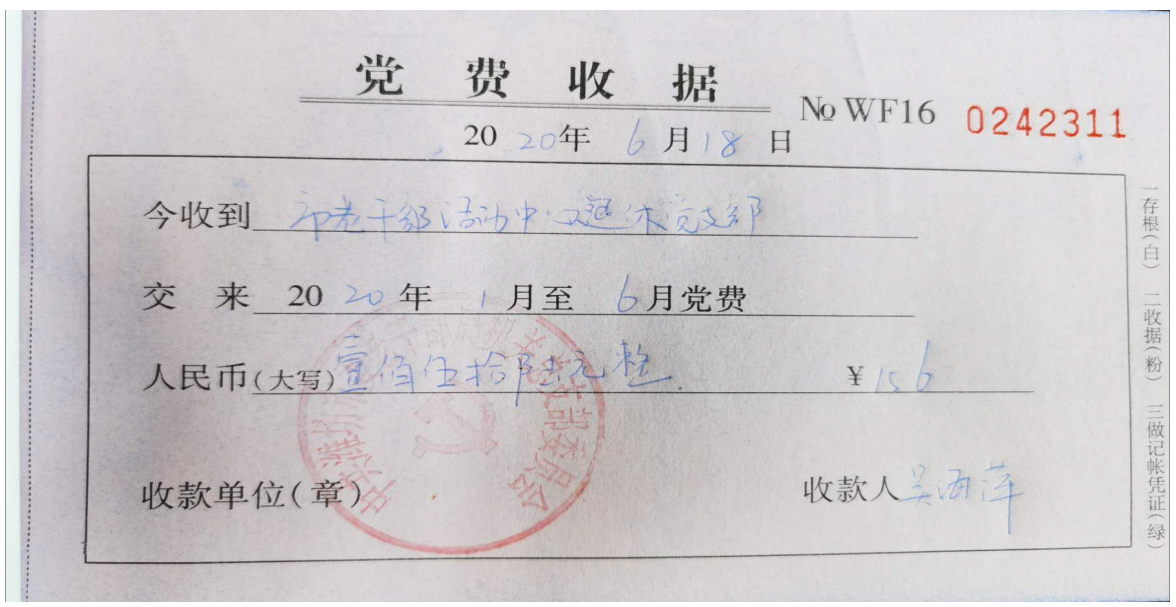 党费收据
№ WF16 0242311
2020年6月18日
今收到 老干部活动中心退休党支部
交来 2020年1月至6月党费
人民币(大写)壹佰伍拾陆元整 ¥156
收款单位(章)
收款人
中共潍坊 支部委员会
一存根(白) 二收据(粉) 三做记帐凭证(绿)